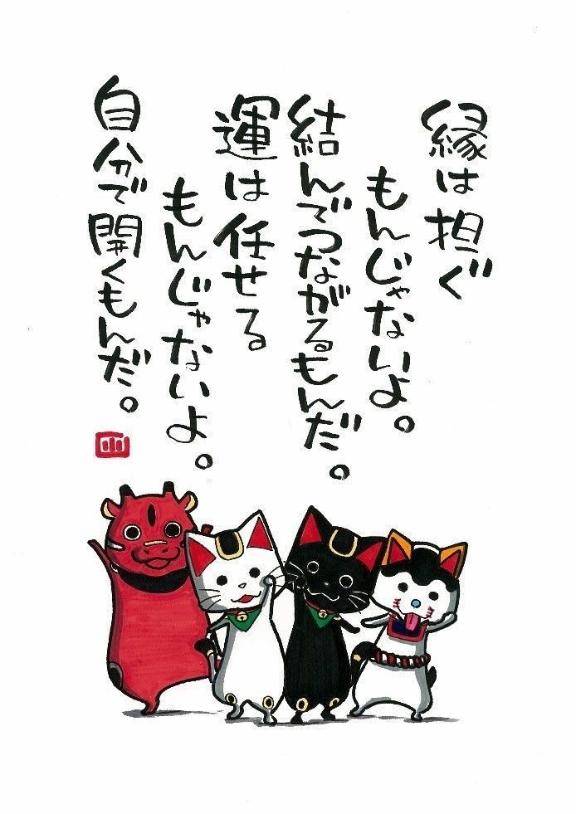 縁は担ぐ
もんじゃないよ。
結んでつながるもんだ。
運は任せる
もんじゃないよ。
自分で開くもんだ。